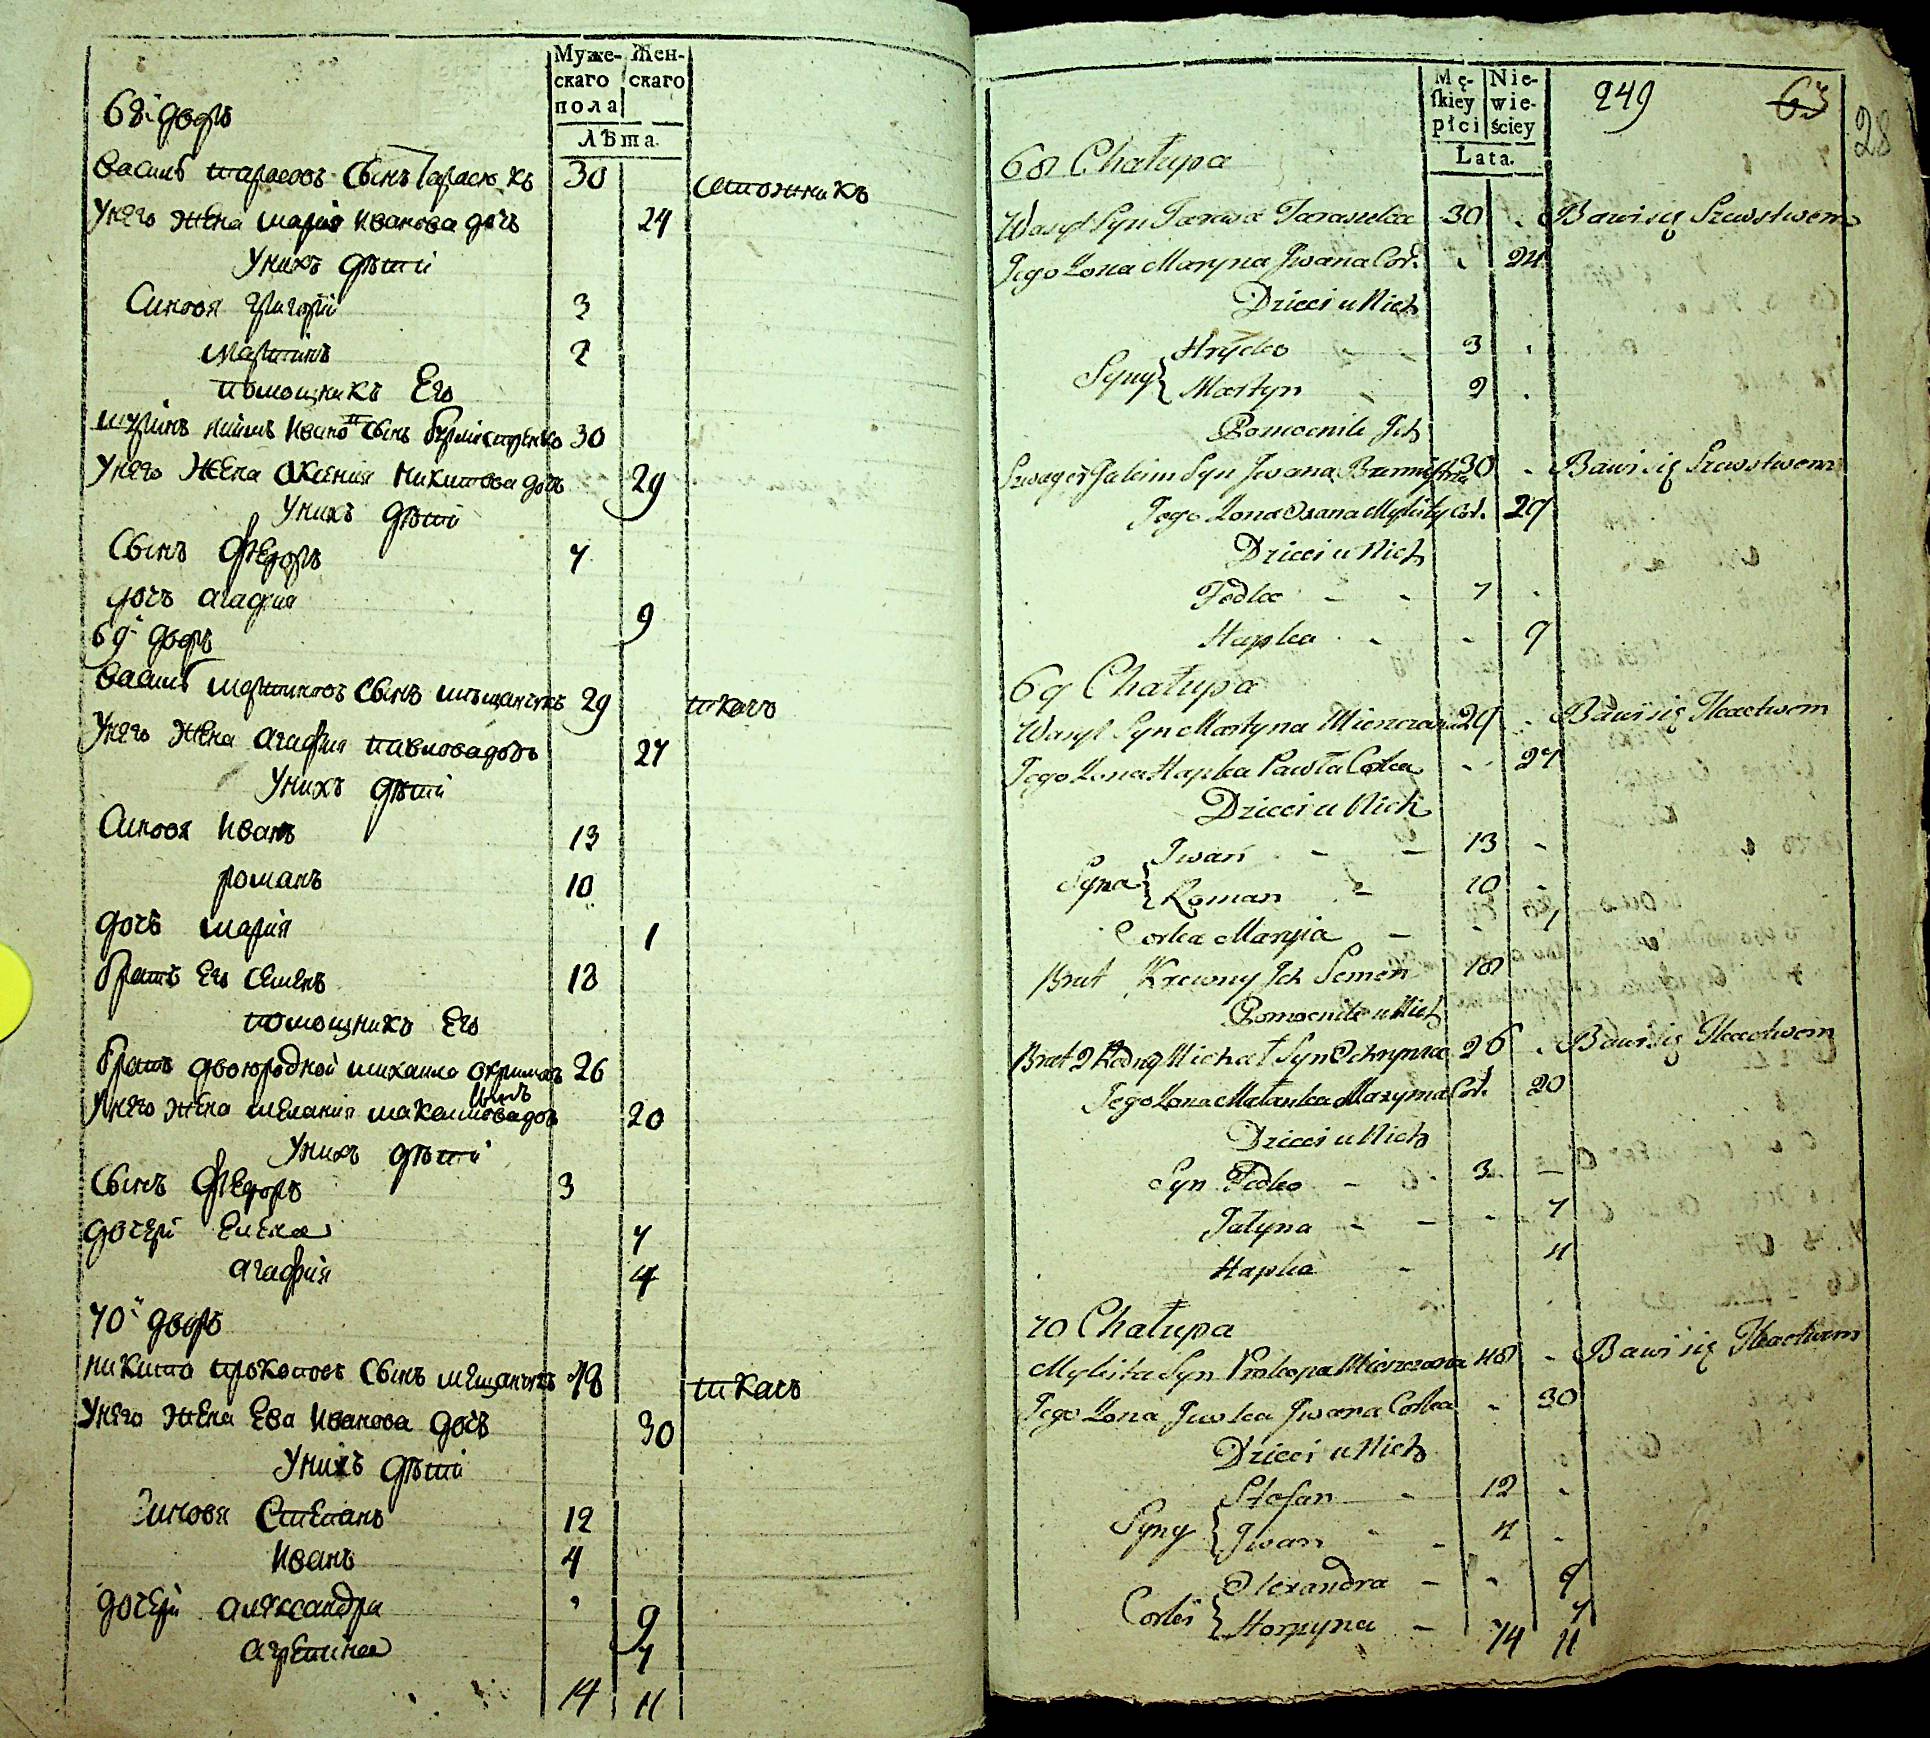 Муже-
скаго
пола
Жен-
скаго
Лѣта.
68й дворъ
Василь Тарасовъ Сынъ Тарасюкъ 30 Сапожникъ
Унего жена Мария Иванова дочь 24
Унихъ дѣти
Синовя Григорій 3
Мартинъ 2
помощникъ Его
шуринъ Якимъ Ивановъ Сынъ 30
Унего жена Ксения Никитова дочь 29
Унихъ дѣти
Сынъ Федоръ 7
дочь агафия 9
69й дворъ
Василь Мартиновъ Сынъ мѣщанчукъ 29 ткачъ
Унего жена агафия павлова дочь 27
Унихъ дѣти
Синовя Иванъ 13
романъ 10
дочь мария 1
братъ Его Семенъ 18
помощникъ Его
братъ двоюродной михаило охримовъ сынъ 26
Унего жена мелания максимова дочь 20
Унихъ дѣти
Сынъ Федоръ 3
дочери Елена 7
агафия 4
70й дворъ
никита прокоповъ Сынъ мещанчукъ 48 ткачъ
Унего жена Ева Иванова дочь 30
Унихъ дѣти
Синовя Степанъ 12
Иванъ 4
дочери александра 9
агрепина 7
14 11
Mę-
skiey
płci
Nie-
wie-
ściey
Lata.
249 63
28
68 Chałupa
Wasyl Syn Tarasa Tarasiuka 30 Bawi się Szewstwem
Jego Zona Maryna Jwana Cor. 24
Dzieci u Nich
Syny Hryćko 3
Martyn 2
Pomocnik Jch
Szwagier Jakim Syn Jwana Burmistrza 30 Bawi się Szewstwem
Jego Zona Oxana Mykity Cor. 29
Dzieci u Nich
Fedko 7
Hapka 9
69 Chałupa
Wasyl Syn Martyna Mieszczana 29 Bawi się Tkactwem
Jego Zona Hapka Pawła Corka 27
Dzieci u Nich
Syna Jwan 13
Roman 10
Corka Maryia 1
Brat Krewny Jch Semen 18
Pomocnik u Nich
Brat 2 Rodny Michał Syn Ochryma 26 Bawi się Tkactwem
Jego Zona Małanka Maxyma Cor. 20
Dzieci u Nich
Syn Fedko 3
Jałyna 7
Hapka 4
70 Chałupa
Mykita Syn Prokopa Mieszczana 48 Bawi się Tkactwem
Jego Zona Jewka Jwana Corka 30
Dzieci u Nich
Syny Stefan 12
Jwan 4
Corki Olexandra 9
Horpyna 7
14 11